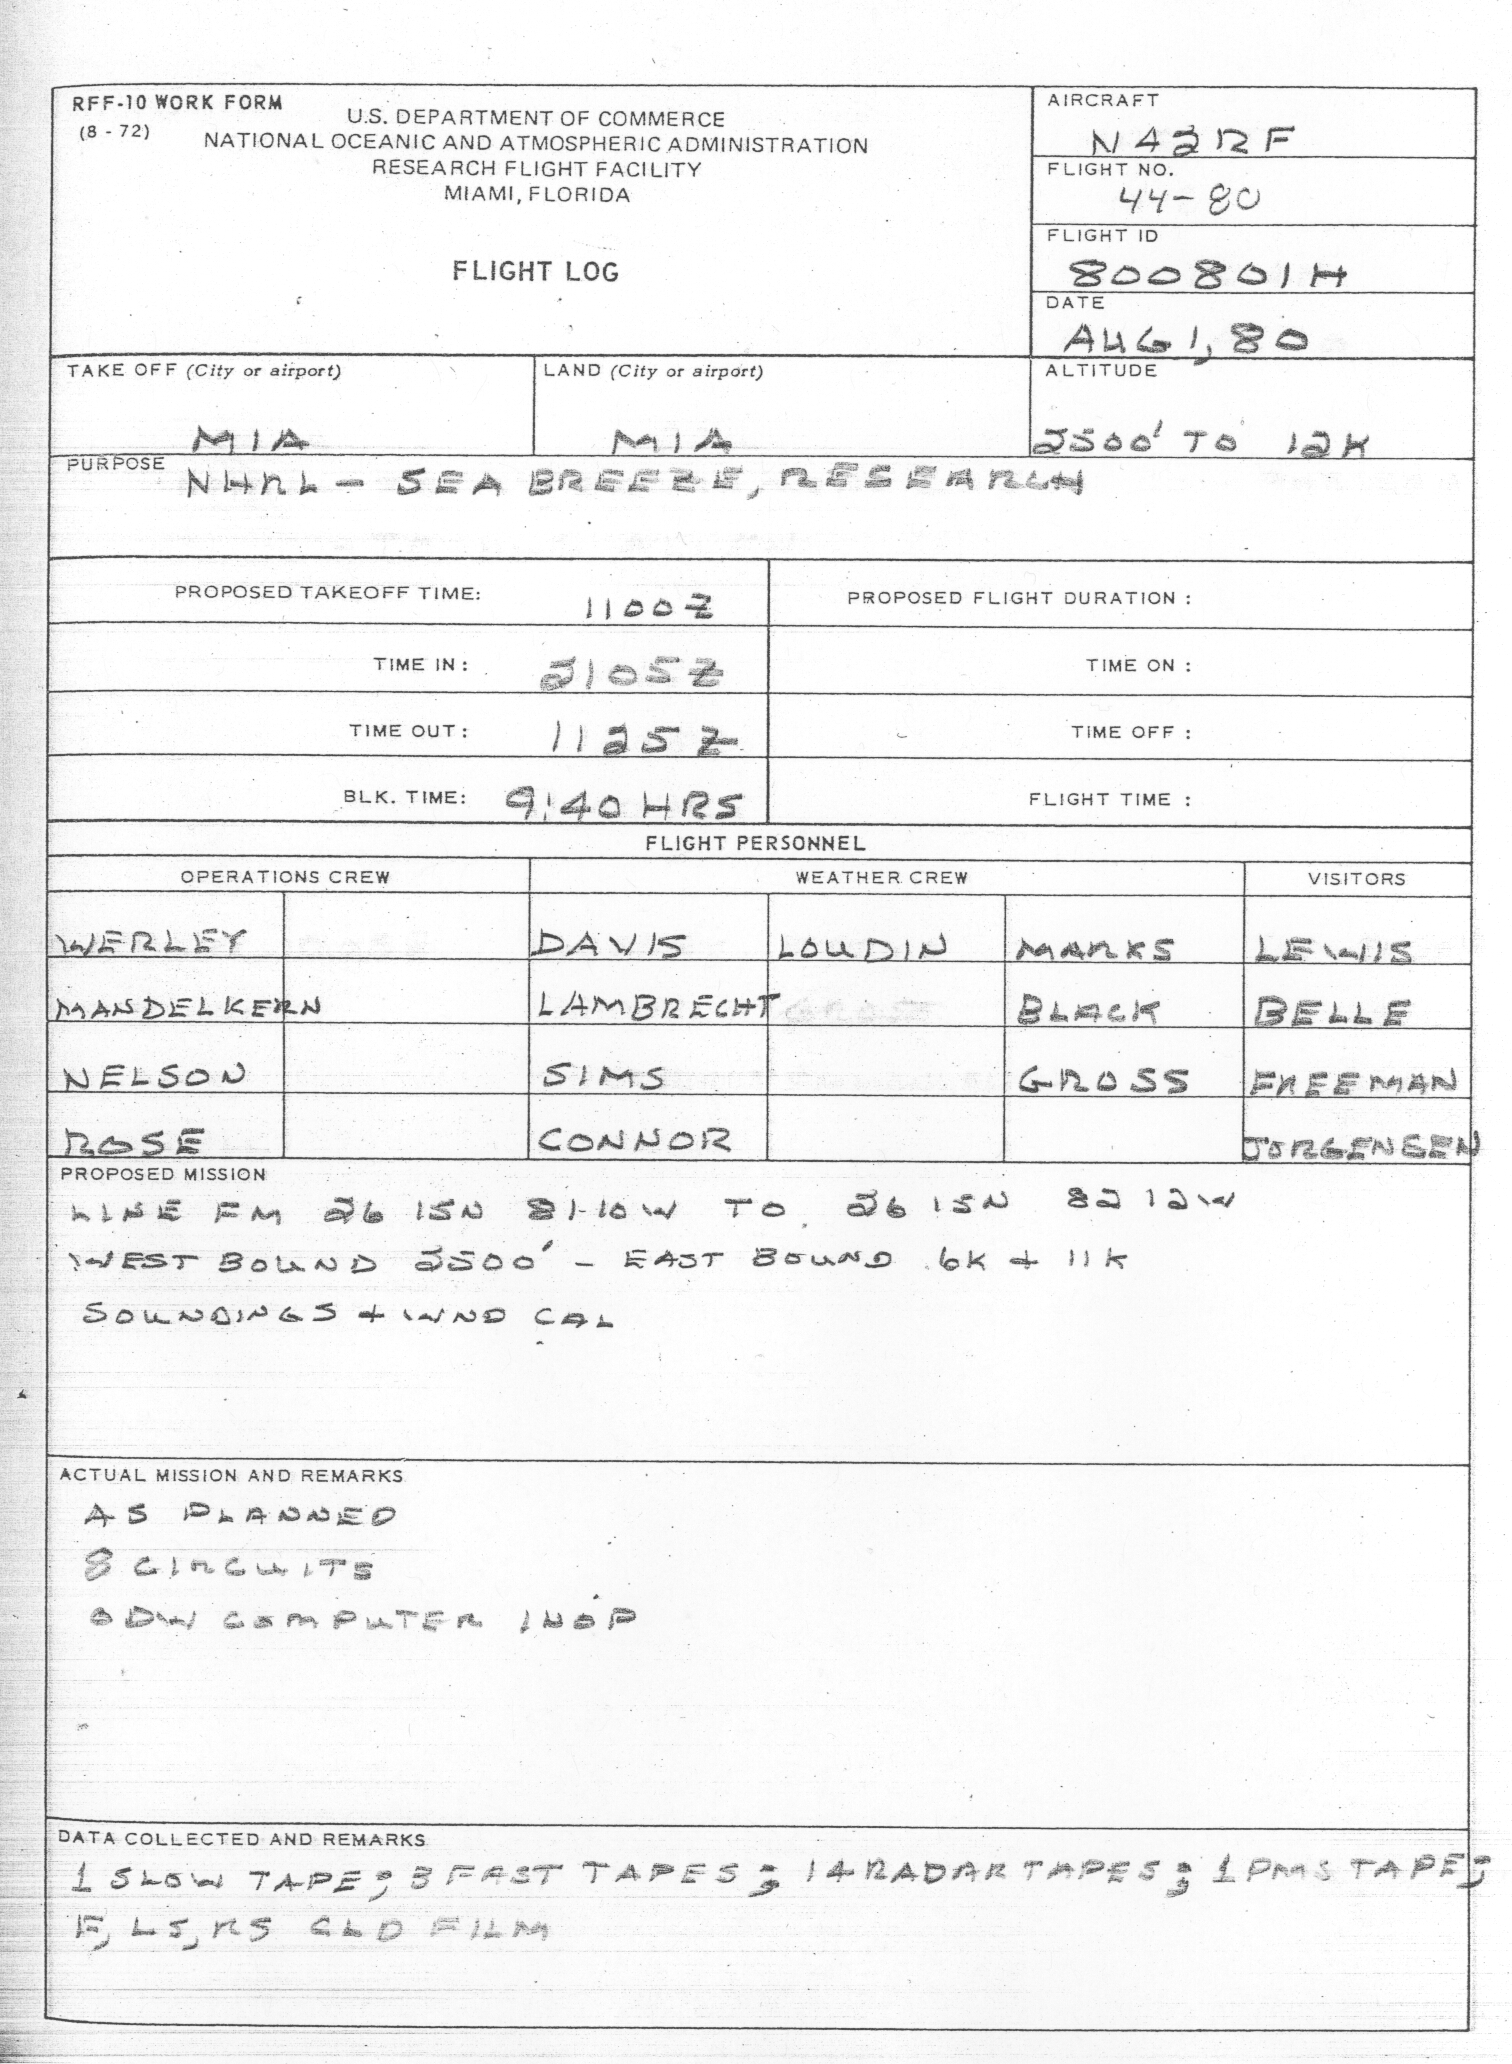 RFF-10 WORK FORM
(8 - 72)
U.S. DEPARTMENT OF COMMERCE
NATIONAL OCEANIC AND ATMOSPHERIC ADMINISTRATION
RESEARCH FLIGHT FACILITY
MIAMI, FLORIDA
FLIGHT LOG
AIRCRAFT
N42RF
FLIGHT NO.
44-80
FLIGHT ID
800801H
DATE
AUG 1, 80
TAKE OFF (City or airport)
MIA
LAND (City or airport)
MIA
ALTITUDE
2500' TO 12K
PURPOSE
NHRL - SEA BREEZE, RESEARCH
PROPOSED TAKEOFF TIME: 1100Z
PROPOSED FLIGHT DURATION :
TIME IN : 2105Z
TIME ON :
TIME OUT : 1125Z
TIME OFF :
BLK. TIME: 9:40 HRS
FLIGHT TIME :
FLIGHT PERSONNEL
OPERATIONS CREW WEATHER CREW VISITORS
WERLEY DAVIS LOUDIN MARKS LEWIS
MANDELKERN LAMBRECHT BLACK BELLE
NELSON SIMS GROSS FREEMAN
ROSE CONNOR JORGENSEN
PROPOSED MISSION
LINE FM 26 15N 81-10W TO 26 15N 82 12W
WEST BOUND 2500' - EAST BOUND 6K + 11K
SOUNDINGS + WND CAL
ACTUAL MISSION AND REMARKS
AS PLANNED
8 CIRCUITS
ODW COMPUTER INOP
DATA COLLECTED AND REMARKS
1 SLOW TAPE; 3 FAST TAPES; 14 RADAR TAPES; 1 PMS TAPE;
F, LS, RS CLD FILM